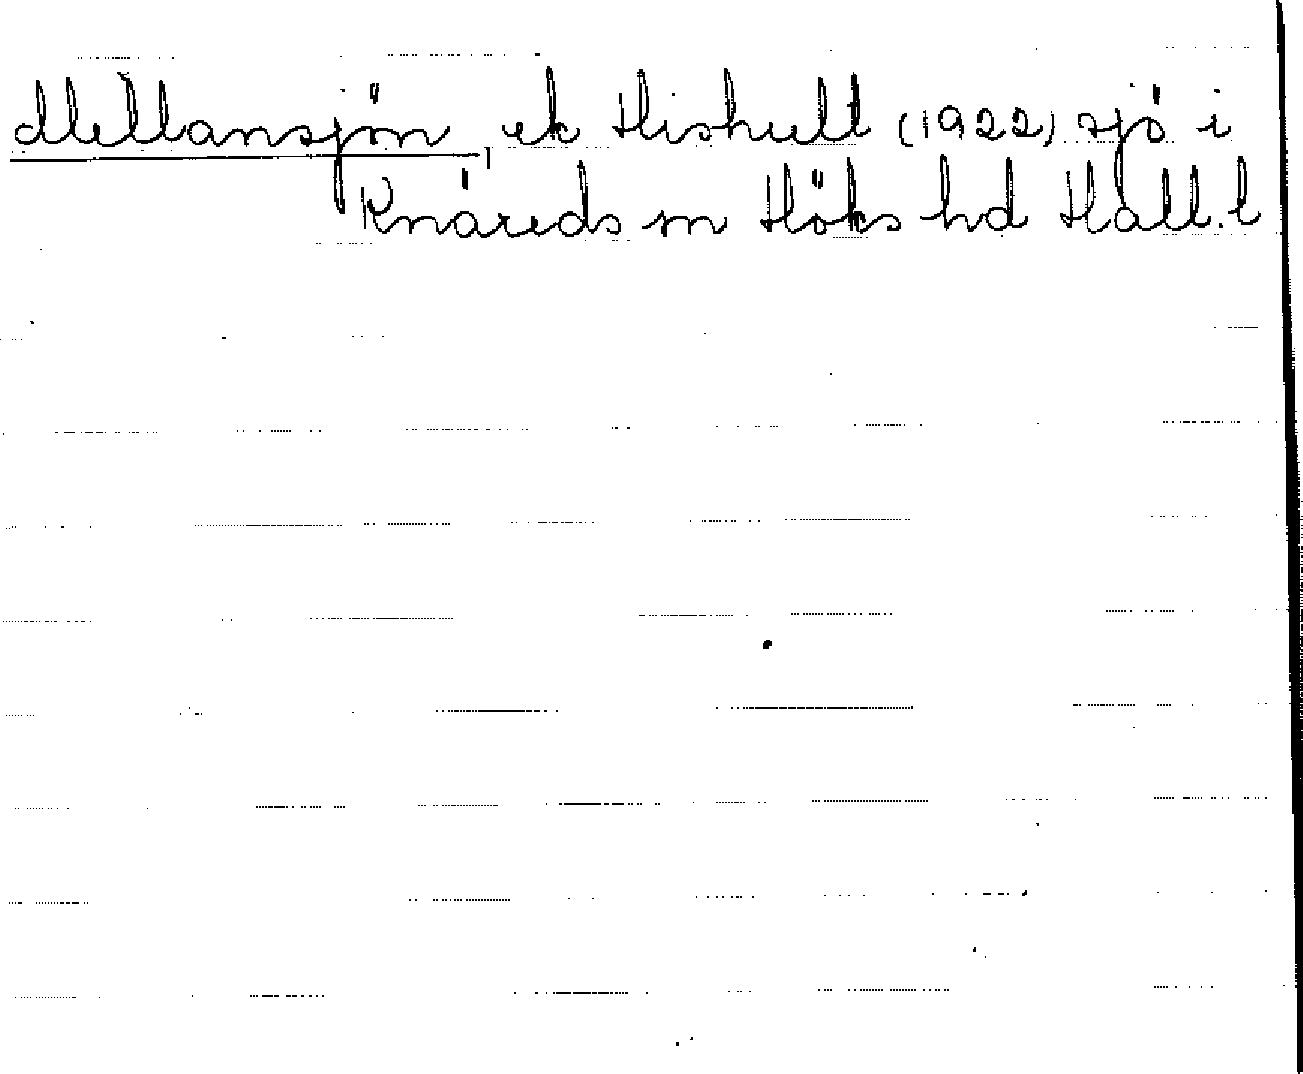 Mellansjön, ek Hishult (1922) sjö i
Knäreds sn Höks hd Hall. l